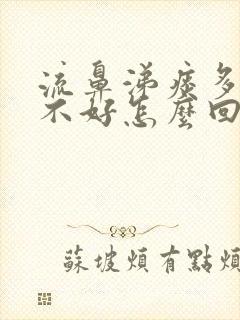 流鼻涕痰多
不好怎麼回
蘇坡煩有點煩